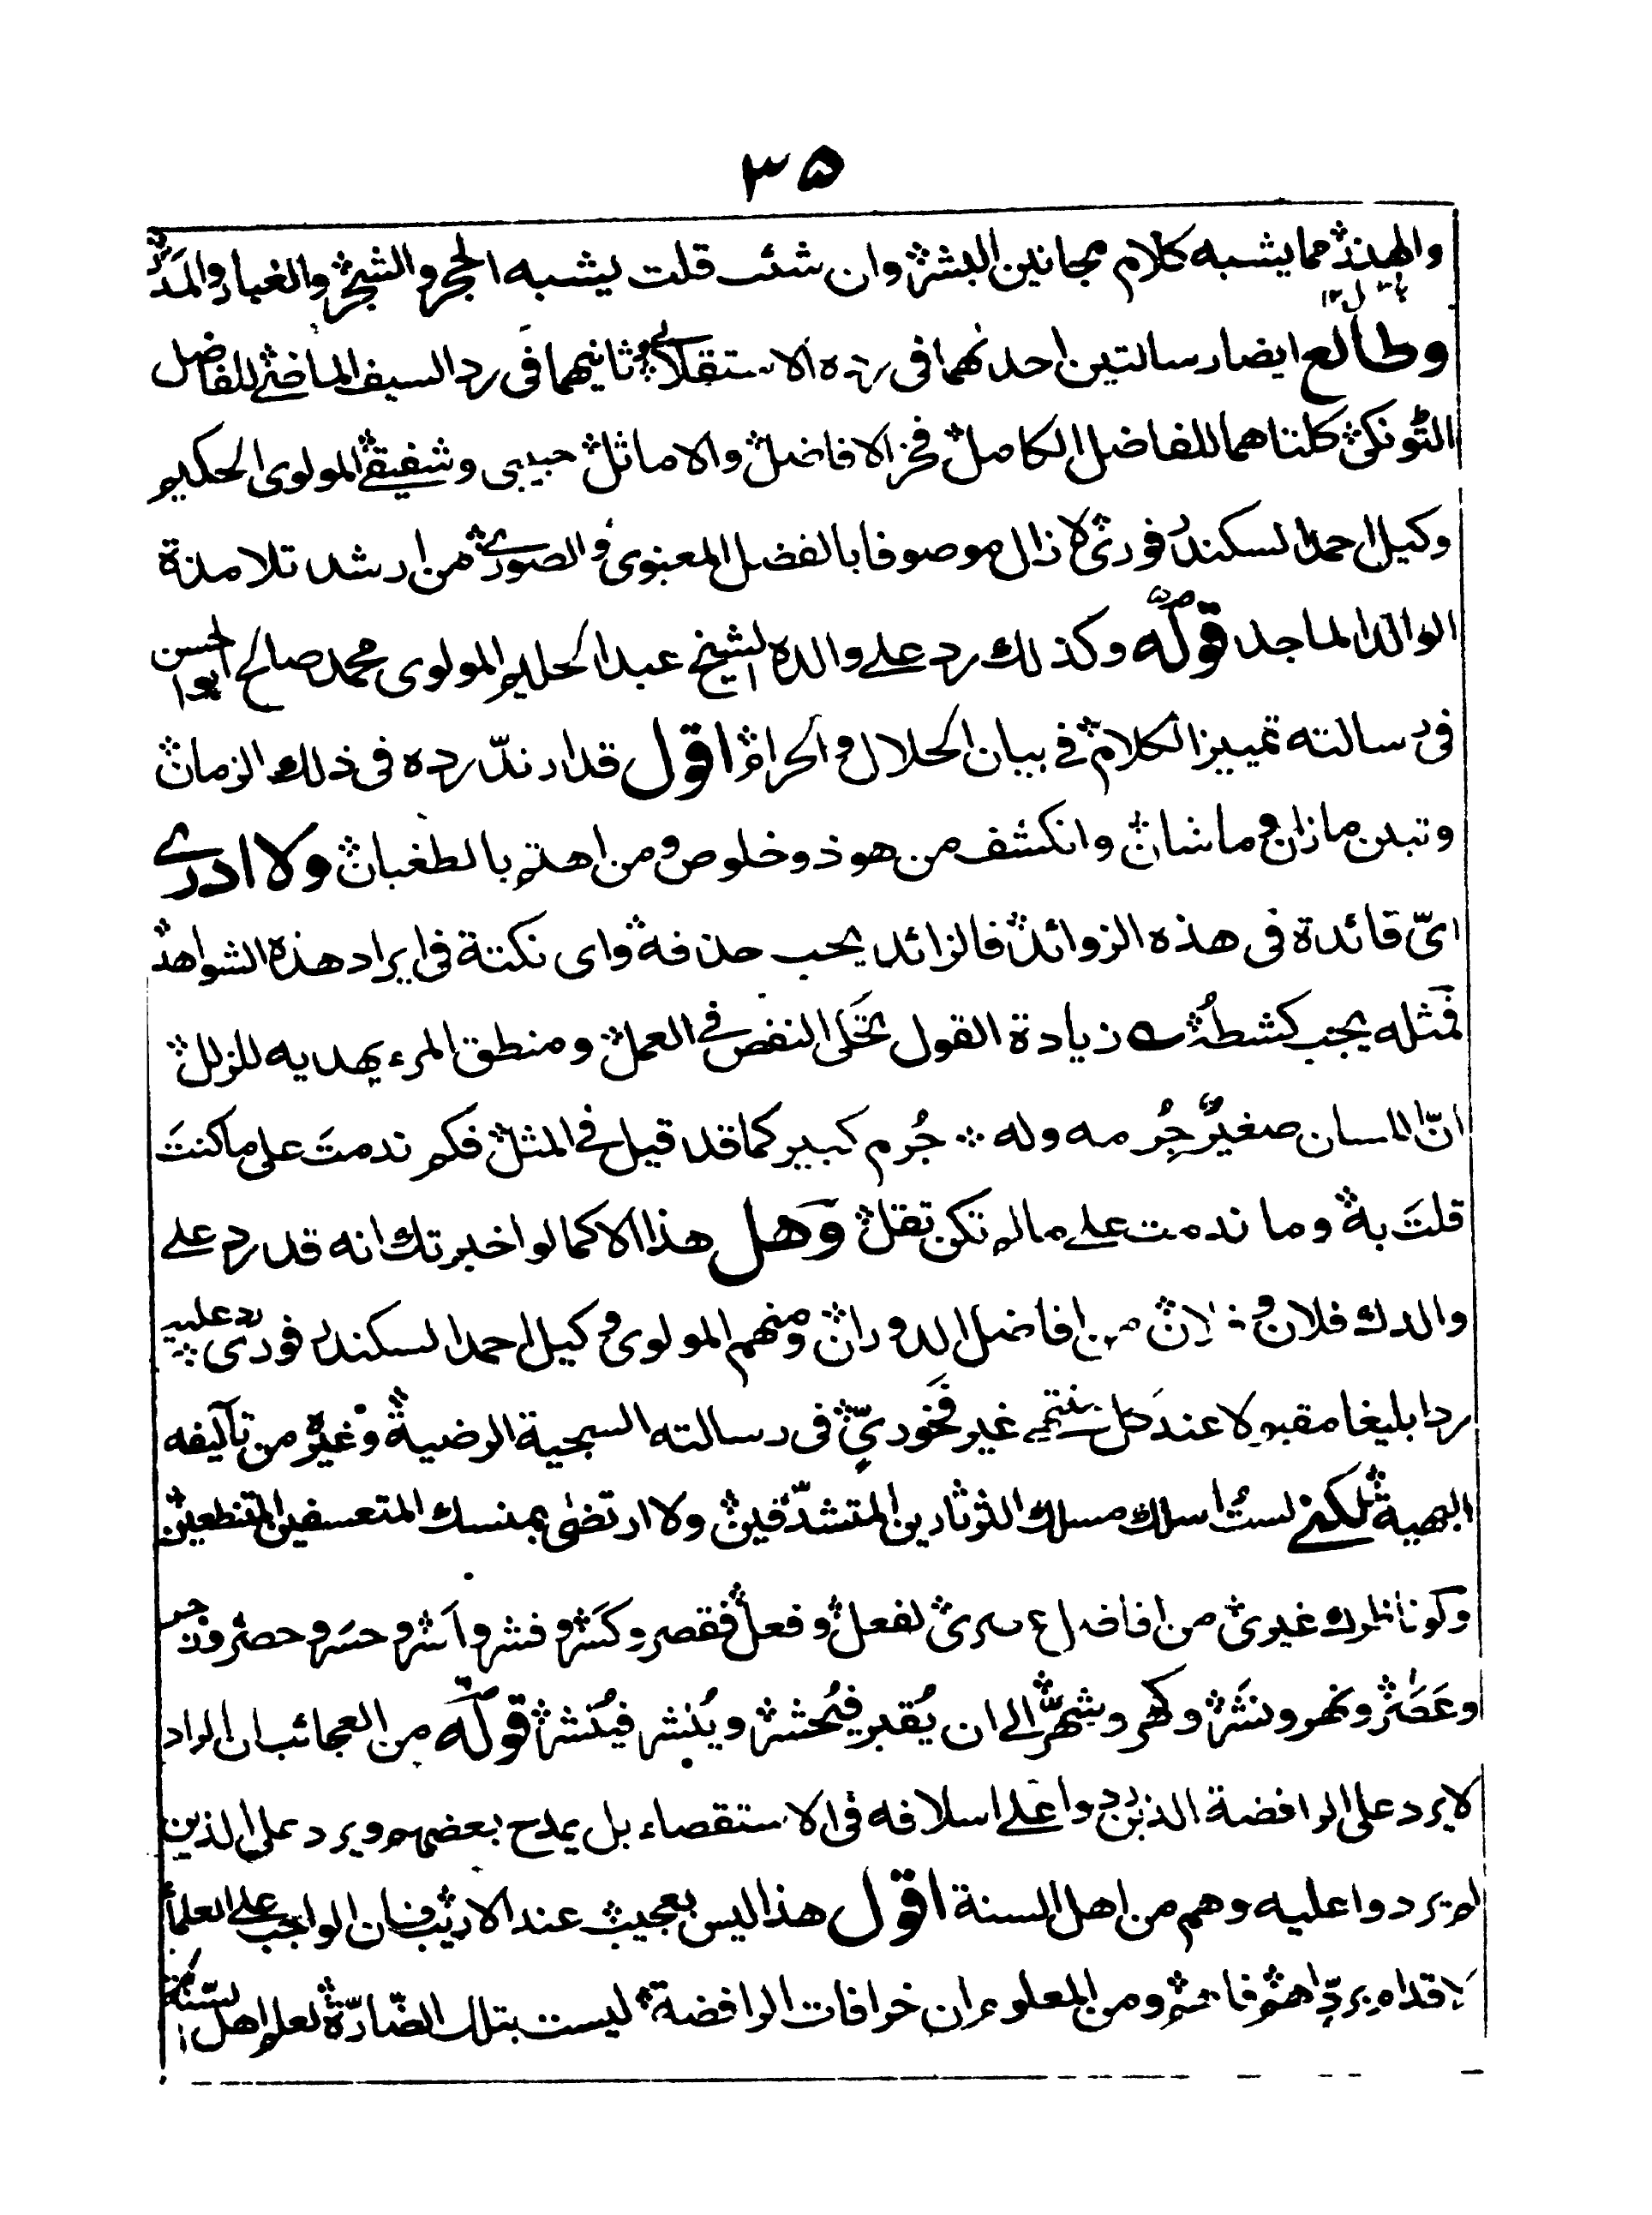 ٣٥
والهذر مما يشبه كلام مجانين البشر وان شئت قلت يشبه الحجر والشجر والغبار والمدر
وطالع ايضا رسالتين احدٰهما فى رده الاستقلالى وثانيهما فى رد السيف الماضى للفاضل
التونكى كلتاهما للفاضل الكامل فخر الافاضل والاماثل حبيبى وشفيقى المولوى الحكيم
وكيل احمد السكندرفورى لا زال موصوفا بالفضل المعنوى والصورى من ارشد تلامذة
الوالد الماجد قوله وكذلك رد على والده الشيخ عبد الحليم المولوى محمد صالح ابو الحسن
فى رسالته تمييز الكلام فى بيان الحلال والحرام اقول قد ارتدّ رده فى ذلك الزمان
وتبين مازان وماشان وانكشف من هو ذو خلوص ومن اهتم بالطغيان ولا ادرى
اىّ فائدة فى هذه الزوائد فالزائد يجب حذفه واى نكتة فى ايراد هذه الشواهد
فمثله يجب كشطه زيادة القول تحكى النقص فى العمل ومنطق المرء يهديه للزلل
انّ اللسان صغيرٌ جِرمه وله جُرم كبير كما قد قيل فى المثل فكم ندمتَ على ما كنتَ
قلتَ به وما ندمت على مالم تكن تقل وهل هذا الا كما لو اخبرتك انه قد رد على
والدك فلان وفلان من افاضل الدوران ومنهم المولوى وكيل احمد السكندرفورى رد عليه
ردا بليغا مقبولا عند كل منتمى غير فخورىّ فى رسالته السجية الرضية وغيره من تآليفه
البهية لكنى لستُ اسلك مسلك الثرثارين المتشدّقين ولا ارتضى بمنسك المتعسفين المتنطعين
ولو ناظرك غيرى من لفعل وفعل فقصر وكسر وفشر واشر وحسر وحصر
وعَصَر ونهر ونشَر وكهر وشهّر الى ان يُقبر فيُحشر ويُنشر فيُنشر قوله من العجائب ان الراد
لا يرد على الرافضة الذين ردوا على اسلافه فى الاستقصاء بل يمدح بعضهم ويرد على الذين
لم يردوا عليه وهم من اهل السنة اقول هذا ليس بعجيب عند الاريب فان الواجب على العلماء
الاقدام برد اهم فاهم ومن المعلوم ان خرافات الرافضة ليست بتلك الضارّة لعلم اهل السنة